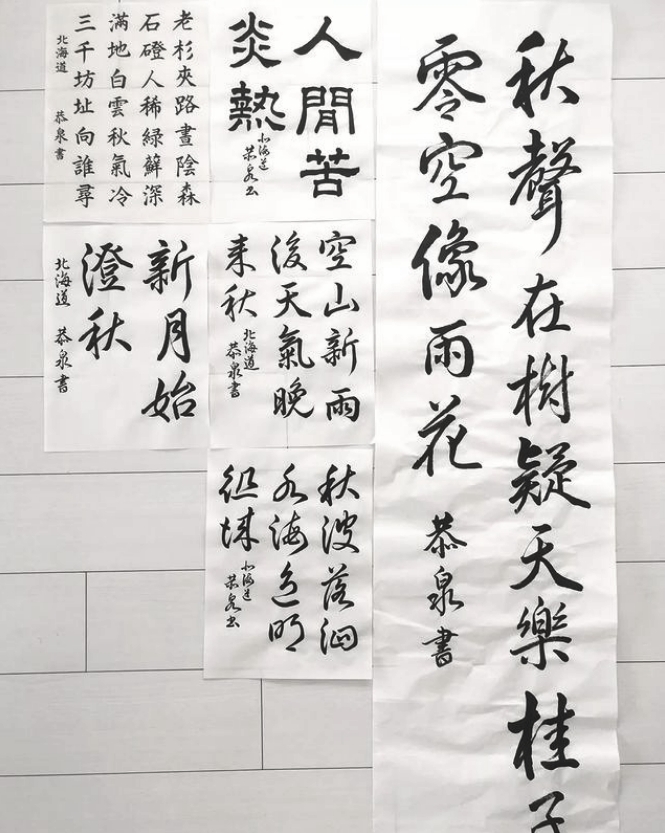 秋聲在樹疑天樂桂子
零空像雨花
恭泉書
人間苦
炎熱
北海道
恭泉書
老杉夾路晝陰森
石磴人稀緑蘚深
満地白雲秋氣冷
三千坊址向誰尋
北海道 恭泉書
空山新雨
後天氣晚
来秋
北海道
恭泉書
新月始
澄秋
北海道 恭泉書
秋波落泗
水海色明
徂徠
北海道
恭泉書